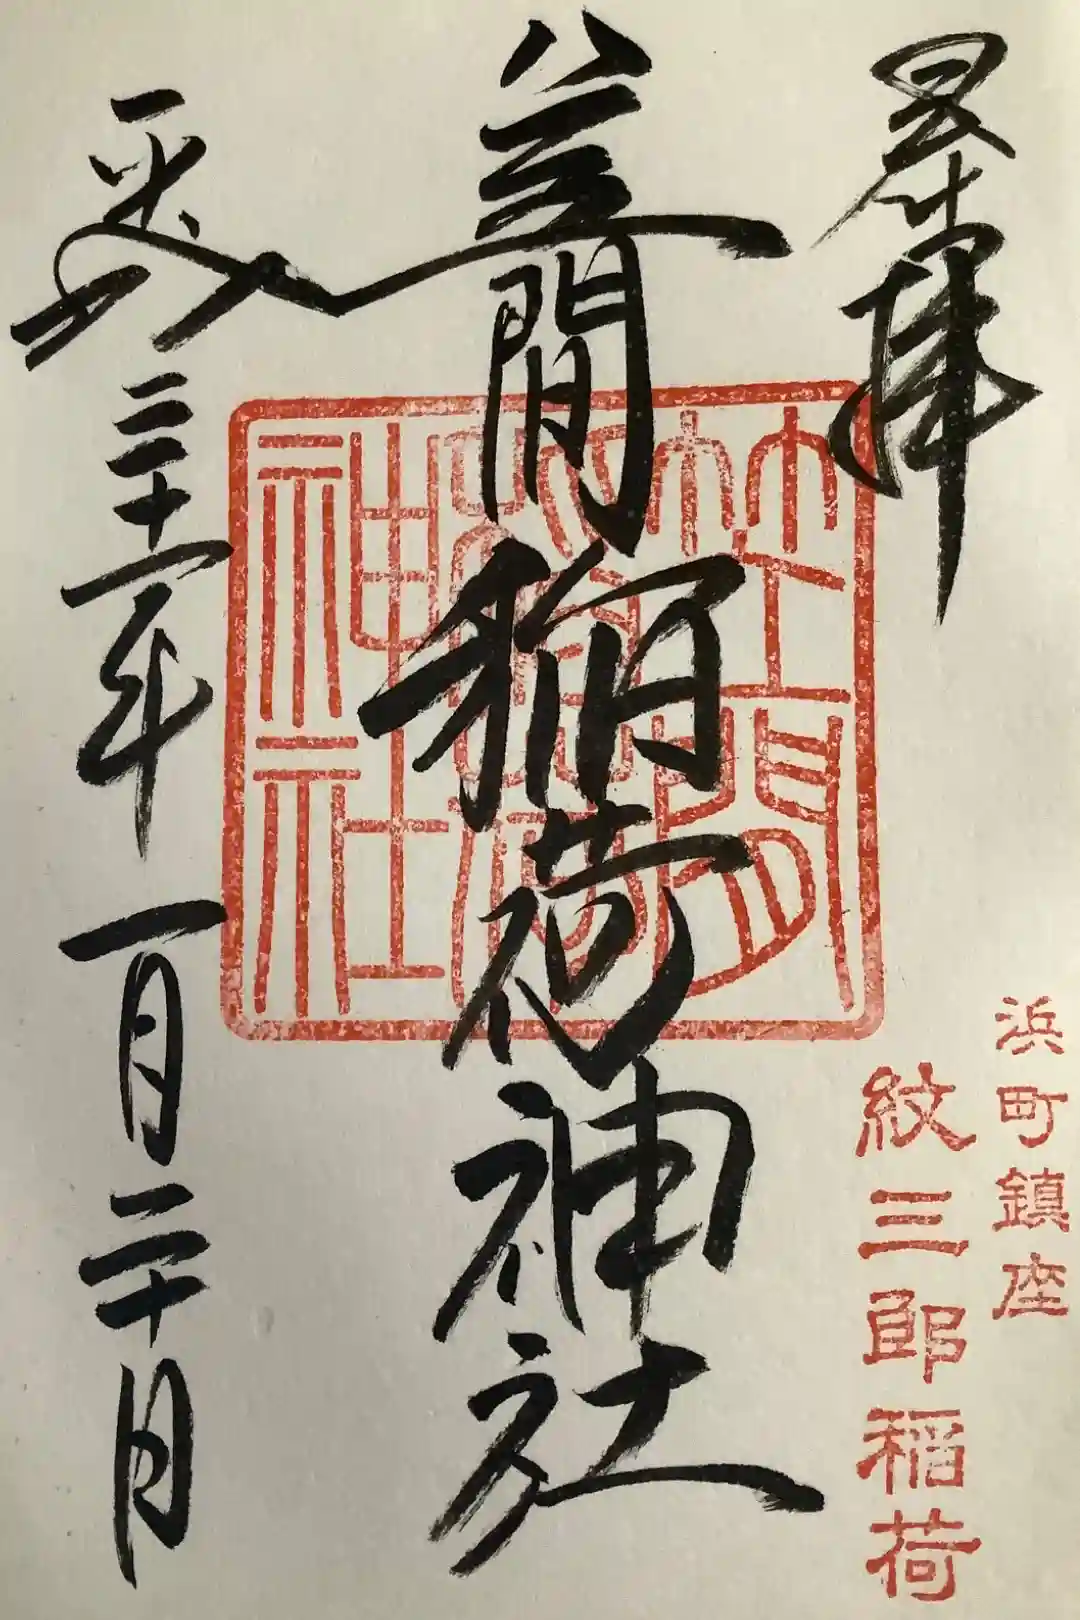 參拝
浜町鎮座
紋三郎稲荷
笠間稲荷神社
笠間
稲荷
神社
平成三十一年一月二十日